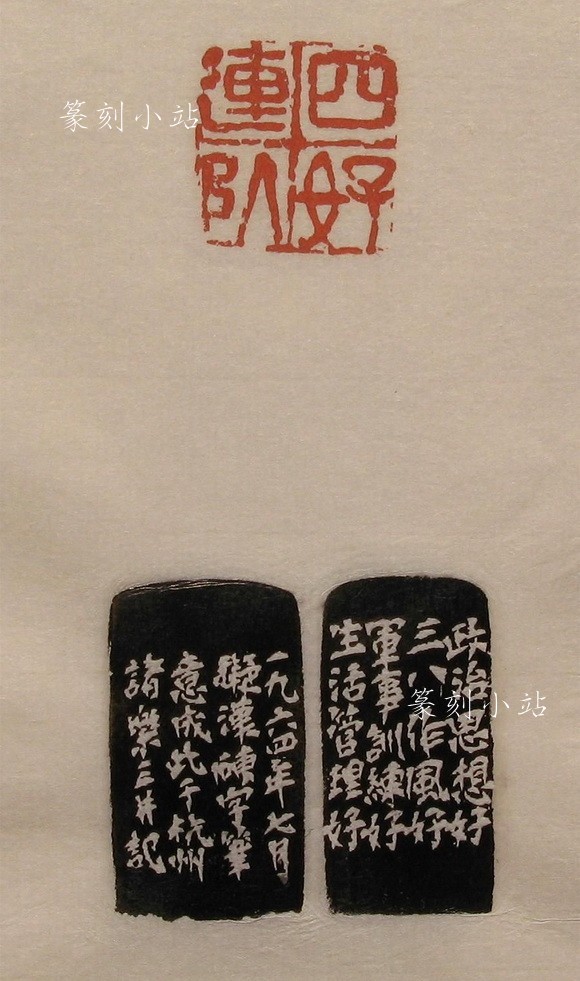 篆刻小站
四好
連队
政治思想好
三八作風好
軍事訓練好
生活管理好
篆刻小站
一九六四年七月
擬漢磚字筆
意成此于杭州
諸樂三并記